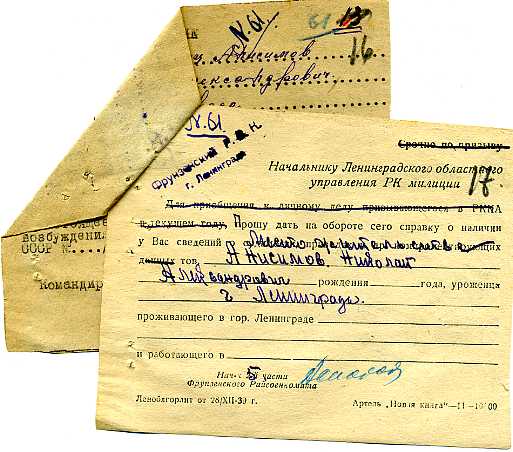 N. 61
61 13
16
Анисимов
Александрович,
возбужден
СССР №
Командир
N. 61
Фрунзенский Р. В. К.
г. Ленинграда
Срочно по призыву
Начальнику Ленинградского областного
управления РК милиции
17.
Для приобщения к личному делу призывающегося в РККА
в текущем году. Прошу дать на обороте сего справку о наличии
у Вас сведений о
данных тов. Анисимов. Николай
Александрович рождения года, уроженца
г Ленинграда.
проживающего в гор. Ленинграде
и работающего в
Нач. 5 части
Фрунзенского Райвоенкомата
Леноблгорлит от 28/XII-39 г. Артель „Новая книга“—11—10000